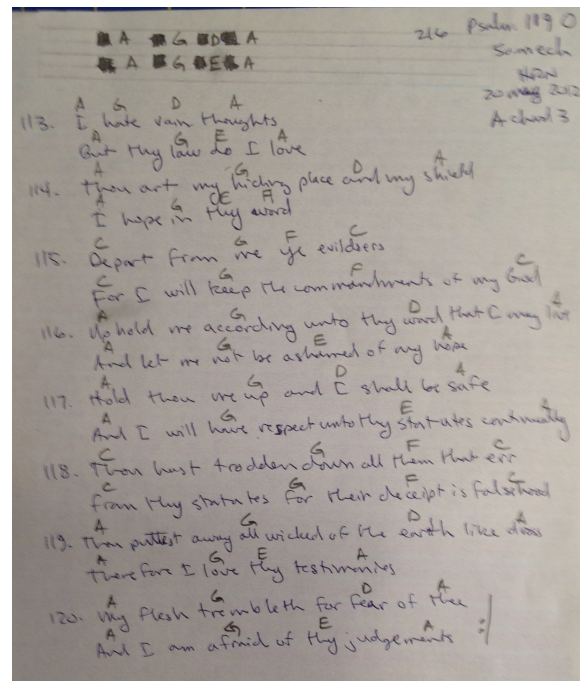 A G D A
216 Psalm 119 O
A G E A
Samech
20 may 2012
A chord 3
A G D A
113. I hate vain thoughts
A G E A
But thy law do I love
A G D A
114. Thou art my hiding place and my shield
A G E A
I hope in thy word
C G F C
115. Depart from me ye evildoers
C G F C
For I will keep the commandments of my God
A G D A
116. Uphold me according unto thy word that I may live
A G E A
And let me not be ashamed of my hope
A G D A
117. Hold thou me up and I shall be safe
A G E A
And I will have respect unto thy statutes continually
C G F C
118. Thou hast trodden down all them that err
C G F C
from thy statutes for their deceipt is falsehood
A G D A
119. Thou puttest away all wicked of the earth like dross
A G E A
therefore I love thy testimonies
A G D A
120. My flesh trembleth for fear of thee
A G E A
And I am afraid of thy judgements :|